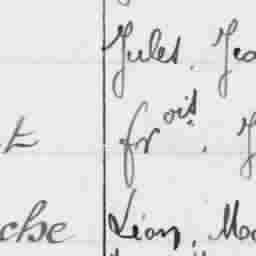 Jules, Jea
t frois, J
che Léon, Ma